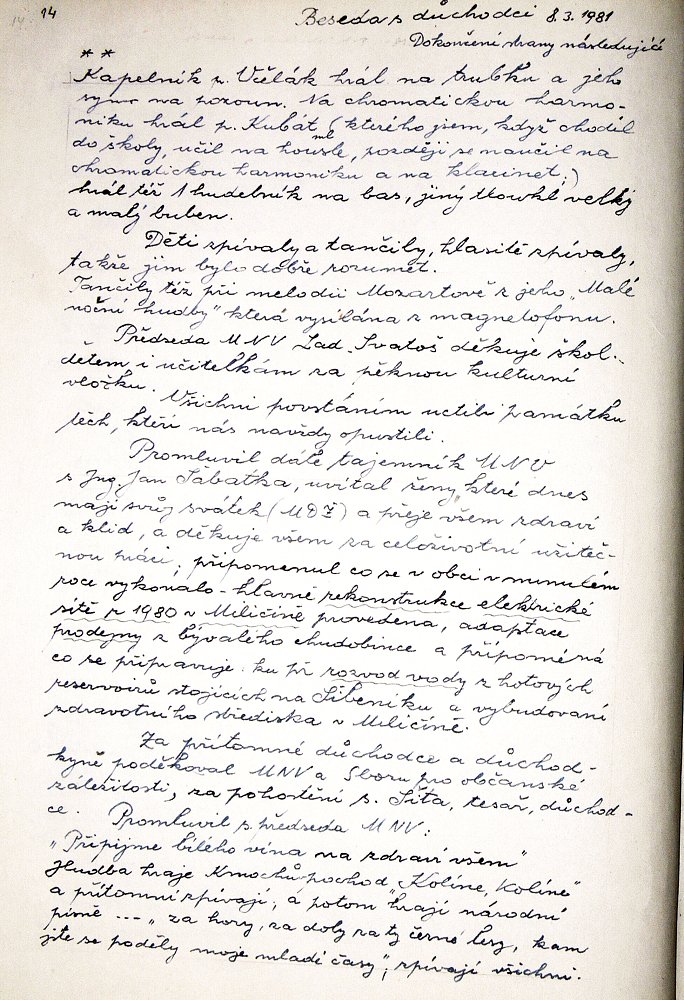 14 14
Beseda s důchodci 8.3. 1981
Dokončení strany následující
* *
Kapelník p. Včelák hrál na trubku a jeho
synové na pozoun. Na chromatickou harmo-
niku hrál p. Kubát, (kterého jsem, když chodil
do školy, učil na housle, později se naučil na
chromatickou harmoniku a na klarinet;)
hrál též 1 hudebník na bas, jiný tloukl velký
a malý buben.
Děti zpívaly a tančily, hlasitě zpívaly,
takže jim bylo dobře rozumět.
Tančily též při melodii Mozartově z jeho „Malé
noční hudby" která vysílána z magnetofonu.
Předseda MNV Lad. Svatoš děkuje škol.
dětem i učitelkám za pěknou kulturní
vložku. Všichni povstáním uctili památku
těch, kteří nás navždy opustili.
Promluvil dále tajemník MNV
s Ing. Jan Sabatka, uvítal ženy, které dnes
mají svůj svátek (MDŽ) a přeje všem zdraví
a klid, a děkuje všem za celoživotní užiteč-
nou práci; připomenul co se v obci v minulém
roce vykonalo - hlavně rekonstrukce elektrické
sítě r 1980 v Miličíně provedena, adaptace
prodejny z bývalého chudobince a připomíná
co se připravuje. ku př rozvod vody z hotových
reservoirů stojících na Šibeníku a vybudování
zdravotního střediska v Miličíně.
Za přítomné důchodce a důchod-
kyně poděkoval MNV a Sboru pro občanské
záležitosti, za pohoštění s. Šíta, tesař, důchod-
ce. Promluvil s. předseda MNV:
„Připijme bílého vína na zdraví všem"
Hudba hraje Kmochův pochod „Kolíne, Kolíne"
a přítomní zpívají, a potom hrají národní
písně --- „ za hory, za doly za ty černé lesy, kam
jste se poděly moje mladé časy", zpívají všichni.